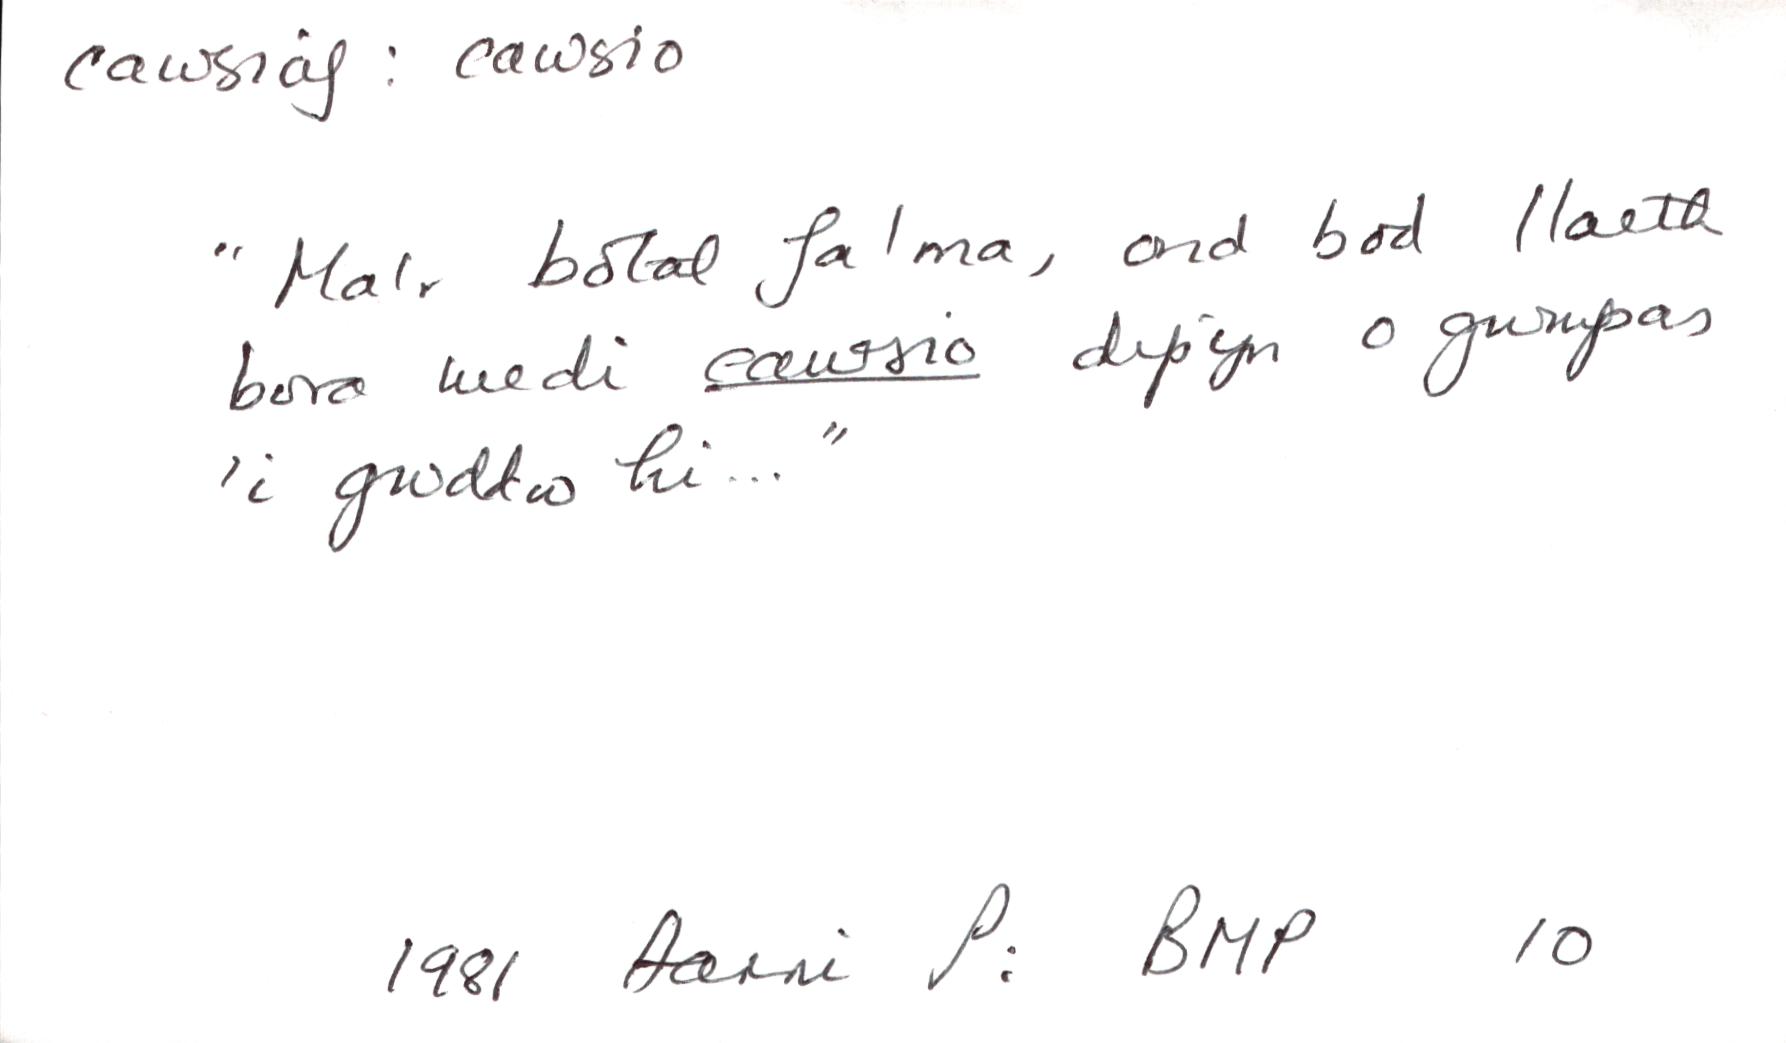 cawsiaf : cawsio
"Ma'r botal fa'ma, ond bod llaeth
bora wedi cawsio dipyn o gwmpas
'i gwddw hi..."
1981 Harri P: BMP 10